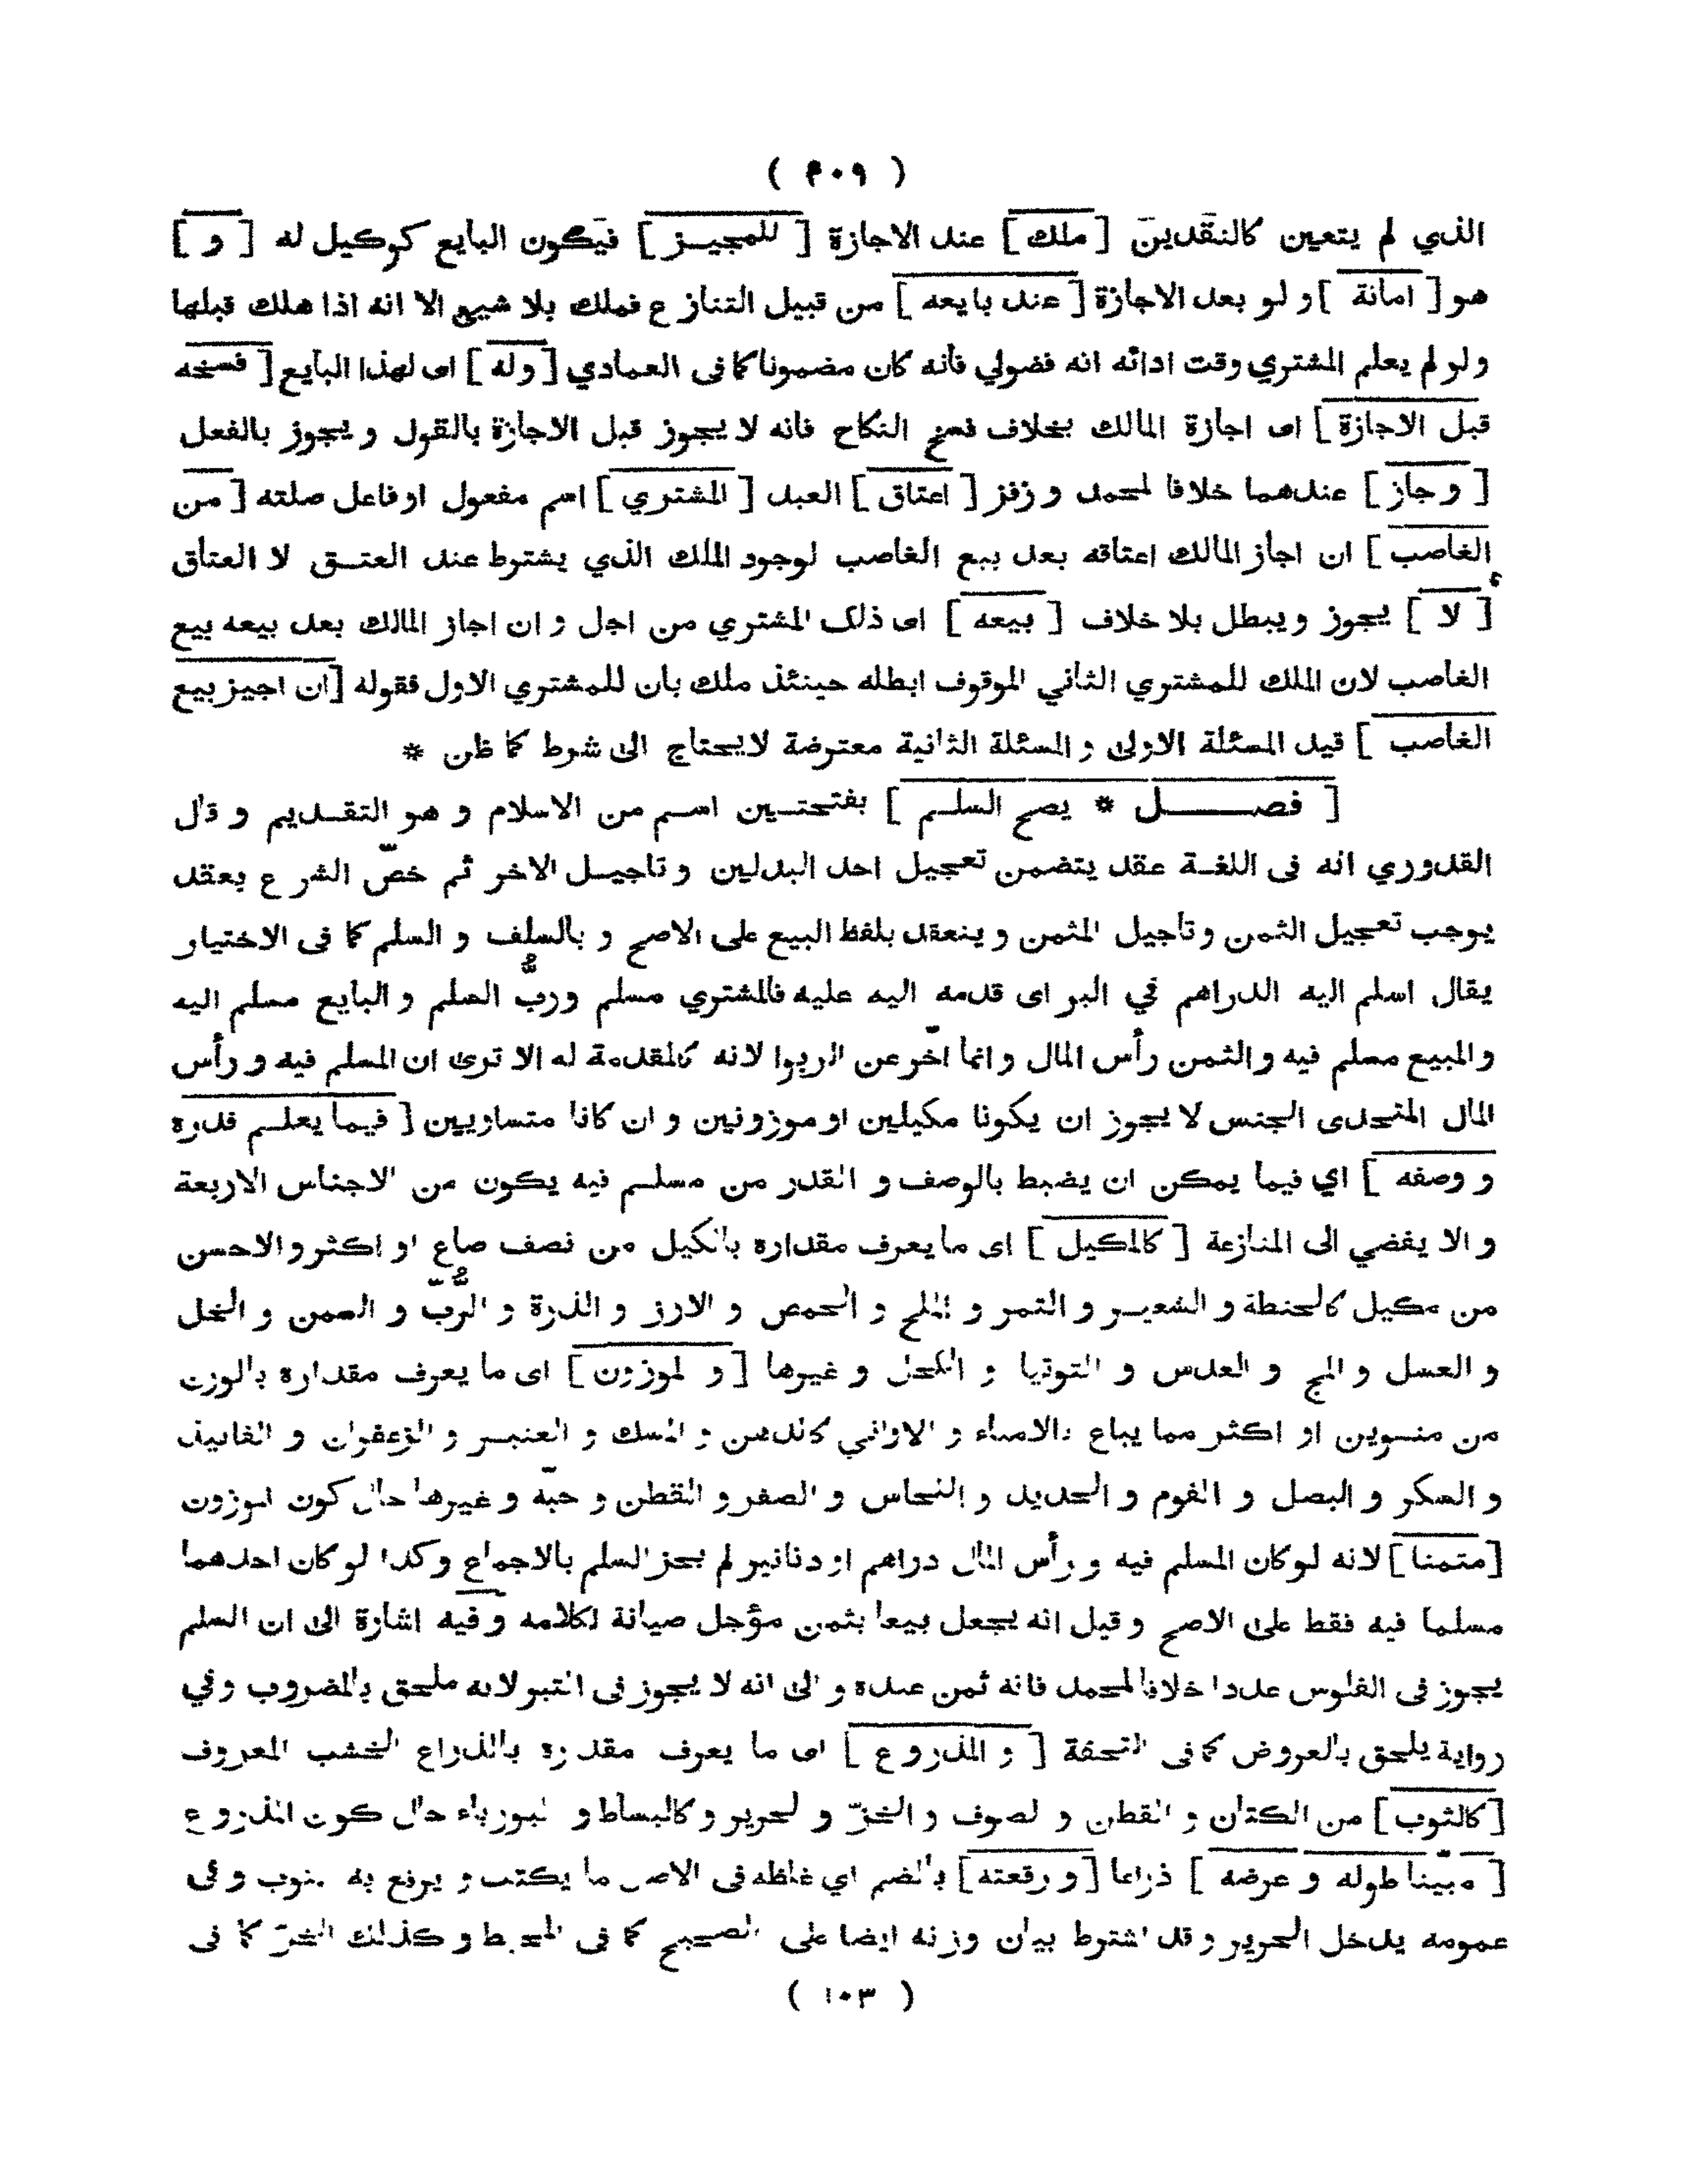 ( ۴۰۹ )
الذي لم يتعين كالنقدين [ ملك ] عند الاجازة [ للمجيـز ] فيكون البايع كوكيل له [ و ]
هو [ امانة ] و لو بعد الاجازة [ عند بايعه ] من قبيل التنازع فملك بلا شيئ الا انه اذا هلك قبلها
ولو لم يعلم المشتري وقت ادائه انه فضولي فانه كان مضمونا كما فى العمادي [ وله ] اى لهذا البايع [ فسخه
قبل الاجازة ] اى اجازة المالك بخلاف فسخ النكاح فانه لا يجوز قبل الاجازة بالقول و يجوز بالفعل
[ و جاز ] عندهما خلافا لمحمد و زفر [ اعتاق ] العبد [ المشتري ] اسم مفعول او فاعل صلته [ من
الغاصب ] ان اجاز المالك اعتاقه بعد بيع الغاصب لوجود الملك الذي يشترط عند العتـق لا العتاق
[ لا ] يجوز و يبطل بلا خلاف [ بيعه ] اى ذلك المشتري من احد و ان اجاز المالك بعد بيعه بيع
الغاصب لان الملك للمشتري الثاني الموقوف ابطله حينئذ ملك بات للمشتري الاول فقوله [ ان اجيز بيع
الغاصب ] قيد المسئلة الاولى و المسئلة الثانية معترضة لايحتاج الى شرط كما ظن *
[ فصـــــل * يصح السلـم ] بفتحتـين اسـم من الاسلام و هو التقـديم و قال
القدوري انه فى اللغـة عقد يتضمن تعجيل احد البدلين و تاجيـل الاخر ثم خصّ الشرع بعقد
يوجب تعجيل الثمن و تاجيل المثمن و ينعقد بلفظ البيع على الاصح و بالسلف و السلم كما فى الاختيار
يقال اسلم اليه الدراهم في البر اى قدمه اليه عليه فالمشتري مسلم وربُّ السلم و البايع مسلم اليه
والمبيع مسلم فيه والثمن رأس المال وانما اخّر عن الربوا لانه كالمقدمة له الا ترى ان المسلم فيه و رأس
المال المتحدى الجنس لا يجوز ان يكونا مكيلين او موزونين و ان كانا متساويين [ فيما يعلـم قدره
و وصفه ] اي فيما يمكن ان يضبط بالوصف و القدر من مسلـم فيه يكون من الاجناس الاربعة
و الا يفضي الى المنازعة [ كالمكيل ] اى ما يعرف مقداره بالكيل من نصف صاع او اكثر والاحسن
من مكيل كالحنطة و الشعيـر و التمر و الملح و الحمص و الارز و الذرة و الرُّبّ و السمن و الخل
و العسل و المج و العدس و التوتيا و الكحل و غيرها [ و لموزون ] اى ما يعرف مقداره بالوزن
من منـوين او اكثر مما يباع بالامناء و الاواني كالدهن و المسك و العنبـر و الزعفران و الفانيذ
و السكر و البصل و الفوم و الحديد و النحاس و الصفر و القطن و حبّه و غيرها حال كون الموزون
[متمنا] لانه لو كان المسلم فيه و رأس المال دراهم او دنانير لم يجز السلم بالاجماع وكذا لو كان احدهما
مسلما فيه فقط على الاصح و قيل انه يجعل بيعا بثمن مؤجل صيانة لكلامه و فيه اشارة الى ان السلم
يجوز فى الفلوس عددا خلافا لمحمد فانه ثمن عنده و الى انه لا يجوز فى التبر لانه ملحق بالمضروب وفي
رواية يلحق بالعروض كما فى التحفة [ و المذروع ] اى ما يعرف مقداره بالذراع الخشب المعروف
[ كالثوب ] من الكتان و القطن و لصوف و الخزّ و لحرير و كالبساط و لبورياء حال كون المذروع
[ مبيّنا طوله و عرضه ] ذراعا [ و رقعته ] بالضم اي غلظه فى الاصل ما يكتب و يرفع به وفى
عمومه يدخل الحرير و قد اشترط بيان وزنه ايضا على الصحيح كما فى المحيط و كذلك الخزّ كما فى
( ۱۰۳ )